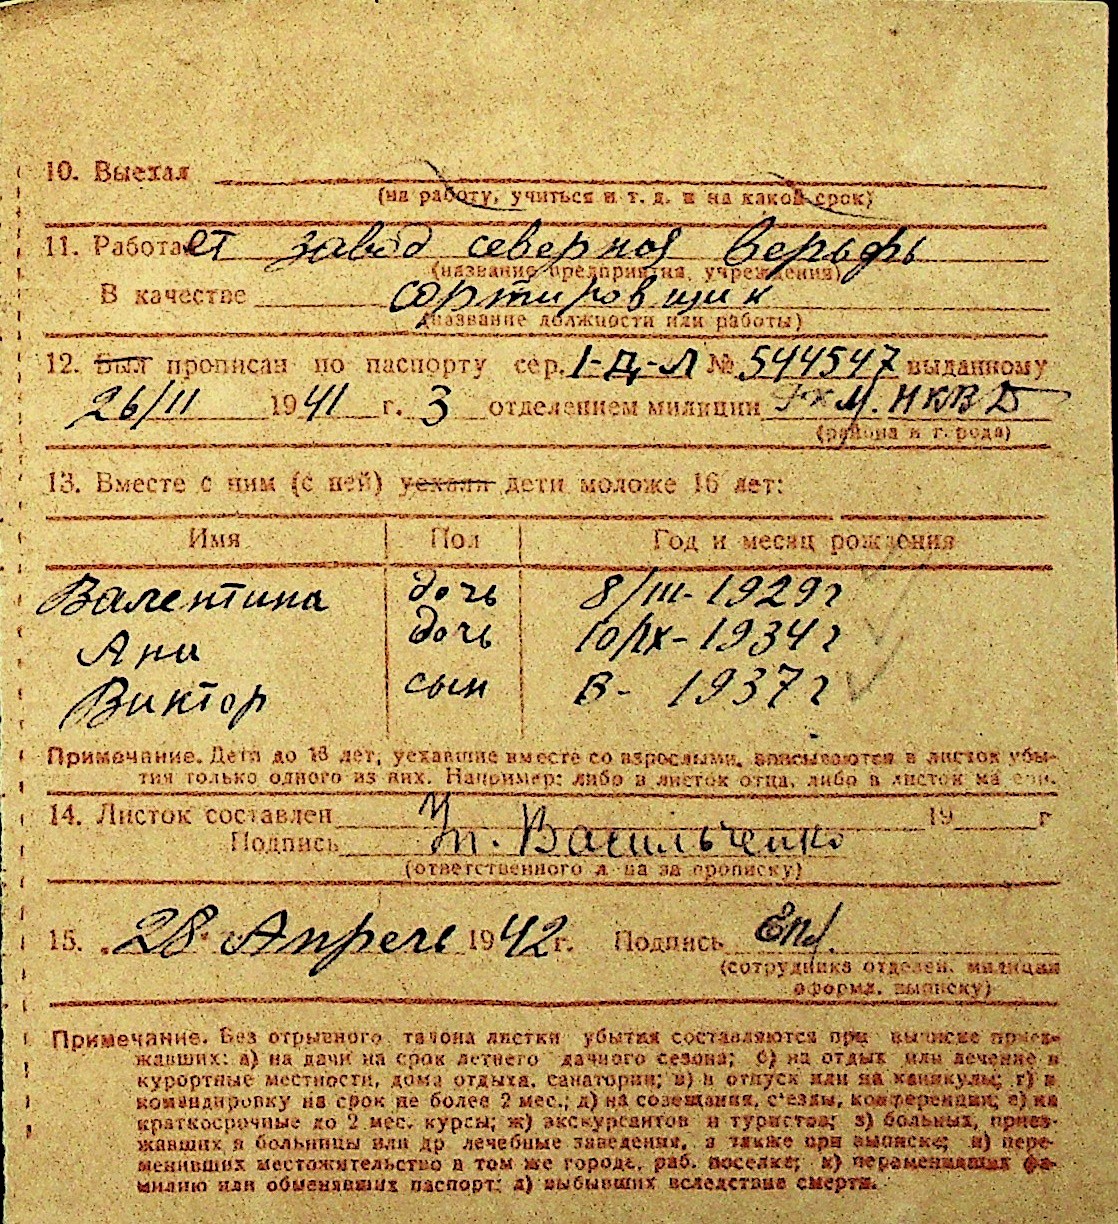 10. Выехал
(на работу, учиться и т. д. и на какой срок)
11. Работает завод северная верьфь
(название предприятия, учреждения)
В качестве сортировщик
(название должности или работы)
12. Был прописан по паспорту сер. I-Д-Л № 544547 выданному
26/11 1941 г. 3 отделением милиции М. НКВД
(района и города)
13. Вместе с ним (с ней) уехали дети моложе 16 лет:
Имя Пол Год и месяц рождения
Валентина дочь 8/III-1929г
Аня дочь 10/IX-1934г
Виктор сын В- 1937г
Примечание. Дети до 16 лет, уехавшие вместе со взрослыми, вписываются в листок убы-
тия только одного из них. Например: либо в листок отца, либо в листок матери.
14. Листок составлен 19 г
Подпись Васильченко
(ответственного лица за прописку)
15. „28" Апреля 1942 г. Подпись
(сотрудника отделен. милиции
оформл. выписку)
Примечание. Без отрывного талона листки убытия составляются при выписке приез-
жавших: а) на дачи на срок летнего дачного сезона; б) на отдых или лечение в
курортные местности, дома отдыха, санатории; в) в отпуск или на каникулы; г) в
командировку на срок не более 2 мес.; д) на совещания, с'езды, конференции; е) на
краткосрочные до 2 мес. курсы; ж) экскурсантов и туристов; з) больных, приез-
жавших в больницы или др лечебные заведения, а также при выписке; и) пере-
менивших местожительство в том же городе, раб. поселке; к) переменивших фа-
милию или обменявших паспорт; л) выбывших вследствие смерти.